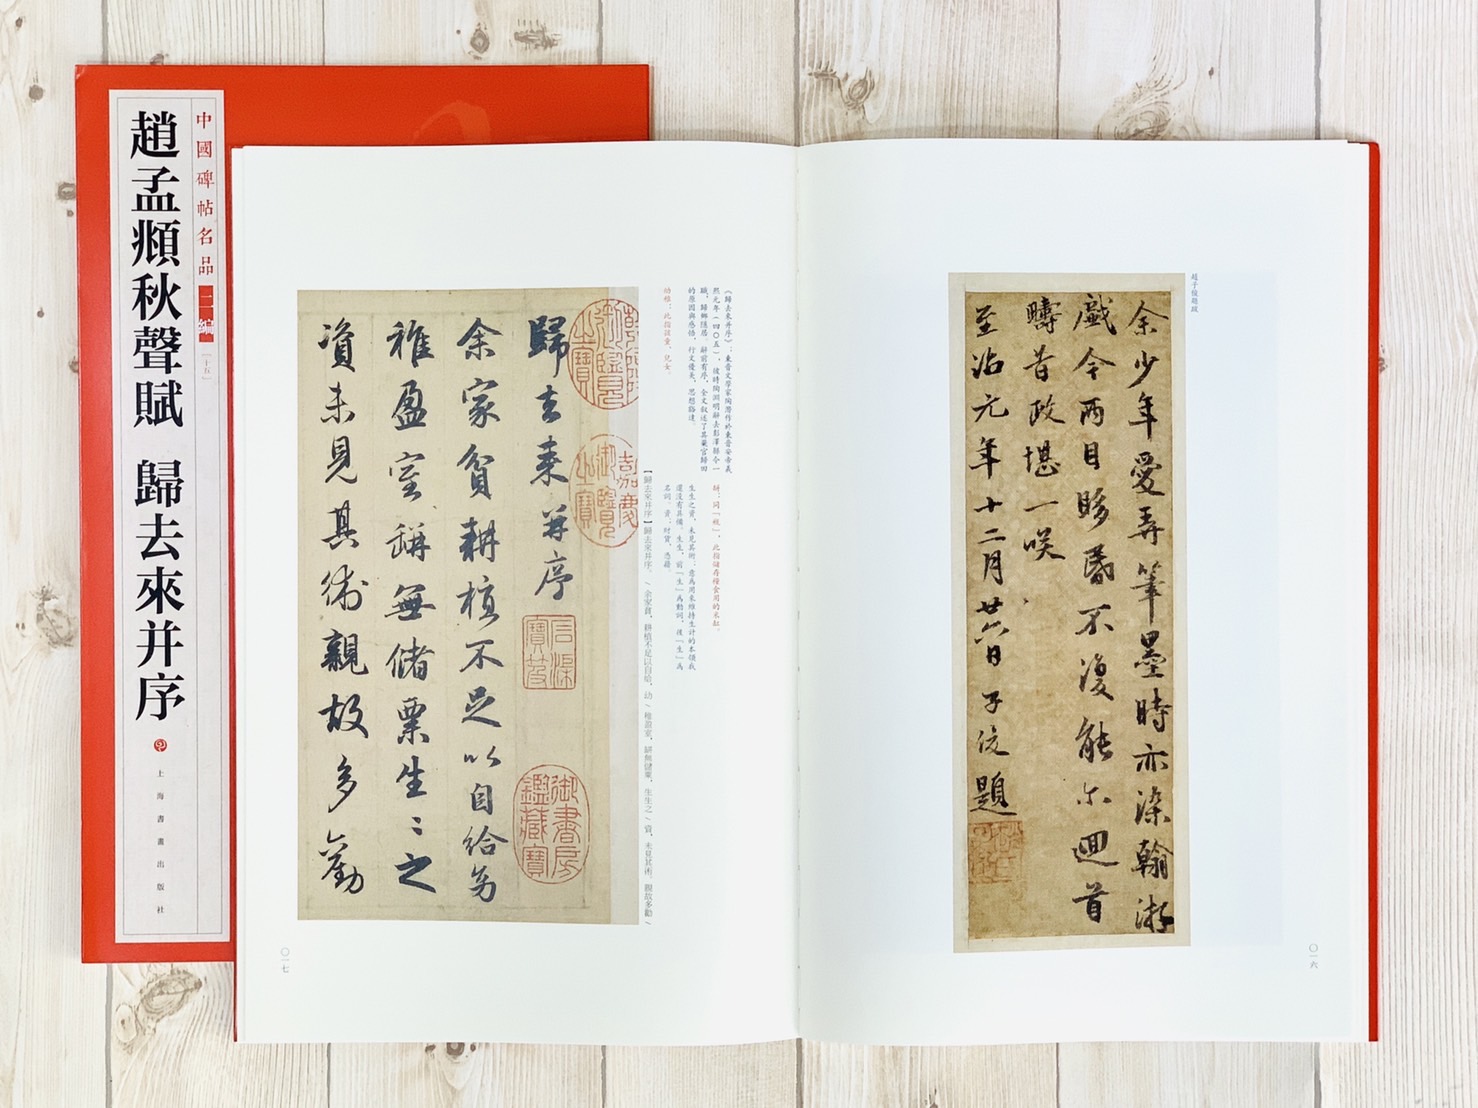 中國碑帖名品
二編
[十五]
趙孟頫秋聲賦 歸去來并序
上海書畫出版社
趙子俊題跋
余少年愛弄筆墨時亦染翰游
戲今兩目眵昏不復能尔迴首
疇昔政堪一咲
至治元年十二月廿六日子俊題
〇一六
《歸去來并序》：東晉文學家陶潛作於東晉安帝義
熙元年（四〇五），彼時陶淵明辭去彭澤縣令一
職，歸鄉隱居。辭前有序，全文叙述了其棄官歸田
的原因與感悟，行文優美，思想豁達。
幼稚：此指孩童、兒女。
缾：同「瓶」，此指儲存糧食用的米缸。
生生之資，未見其術：意爲用來維持生計的本領我
還没有具備。生生，前「生」爲動詞，後「生」爲
名詞。資：財貨，憑藉。
【歸去來并序】歸去來并序。／余家貧，耕植不足以自給。幼／稚盈室，缾無儲粟，生生之／資，未見其術。親故多勸／
乾隆御覽之寶
嘉慶御覽之寶
歸去来并序
石渠寶笈
御書房鑑藏寶
余家貧耕植不足以自給幼
稚盈室缾無儲粟生〻之
資未見其術親故多勸
〇一七